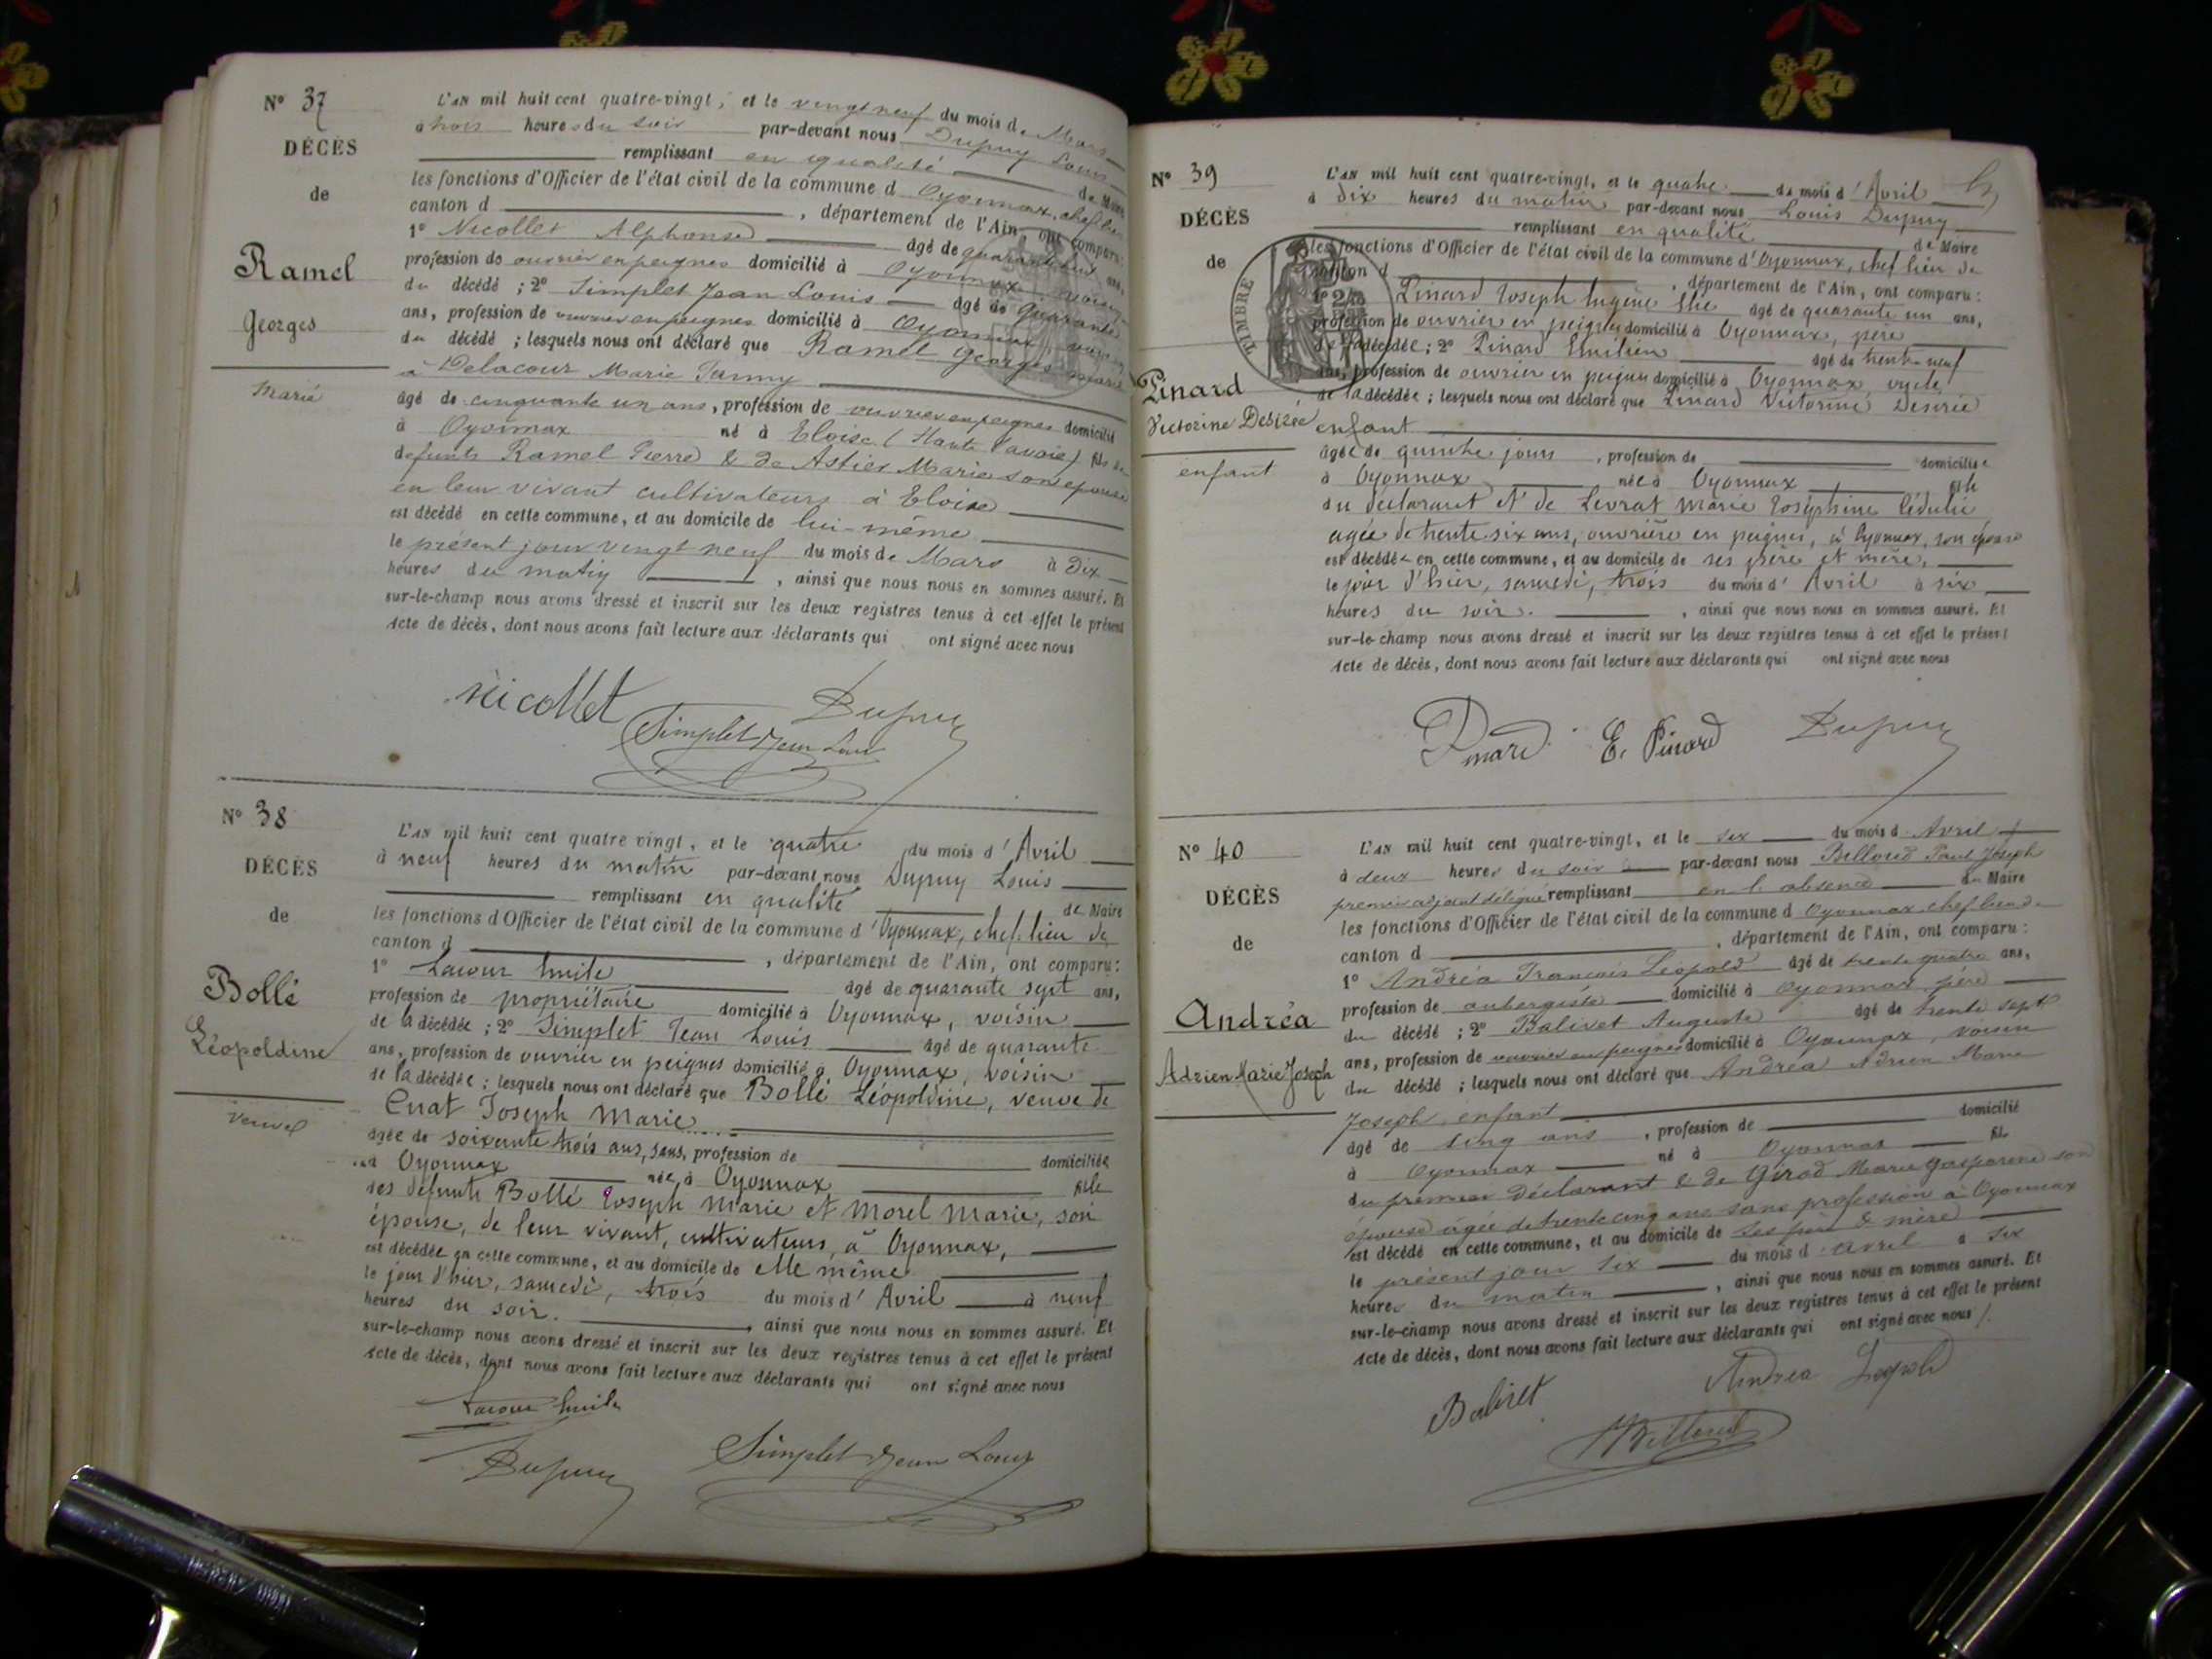 N° 37
DÉCÈS
de
Ramel
Georges
Marié
L'AN mil huit cent quatre-vingt, et le vingt neuf du mois de Mars
à trois heures du soir par-devant nous Dupuy Louis
remplissant en qualité de Maire
les fonctions d'Officier de l'état civil de la commune d Oyonnax, chef lieu
canton d , département de l'Ain, ont comparu:
1° Nicollet Alphonse âgé de ans,
profession de ouvrier en peignes domicilié à Oyonnax voisin
du décédé ; 2° Simplet Jean Louis âgé de quarante
ans, profession de ouvrier en peignes domicilié à Oyonnax, voisin
du décédé ; lesquels nous ont déclaré que Ramel Georges marié
à Delacour Marie Fanny
âgé de cinquante un ans, profession de ouvrier en peignes domicilié
à Oyonnax né à Eloise (Haute Savoie) fils de
defunts Ramel Pierre & de Astier Marie son epouse
en leur vivant cultivateurs à Eloise
est décédé en cette commune, et au domicile de lui-même
le présent jour vingt neuf du mois de Mars à Dix
heures du matin , ainsi que nous nous en sommes assuré. Et
sur-le-champ nous avons dressé et inscrit sur les deux registres tenus à cet effet le présent
Acte de décès, dont nous avons fait lecture aux déclarants qui ont signé avec nous
Nicollet
Simplet Jean Louis
Dupuy
N° 38
DÉCÈS
de
Bollé
Léopoldine
Veuve
L'AN mil huit cent quatre vingt, et le quatre du mois d'Avril
à neuf heures du matin par-devant nous Dupuy Louis
remplissant en qualité de Maire
les fonctions d'Officier de l'état civil de la commune d'Oyonnax, chef-lieu de
canton d , département de l'Ain, ont comparu:
1° Lacour Emile âgé de quarante sept ans,
profession de propriétaire domicilié à Oyonnax, voisin
de la décédée ; 2° Simplet Jean Louis âgé de quarante
ans, profession de ouvrier en peignes domicilié à Oyonnax, voisin
de la décédée ; lesquels nous ont déclaré que Bollé Léopoldine, veuve de
Cuat Joseph Marie
âgée de soixante trois ans, sans, profession de domiciliée
à Oyonnax née à Oyonnax fille
des défunts Bollé Joseph Marie et Morel Marie, son
épouse, de leur vivant, cultivateurs, à Oyonnax,
est décédée en cette commune, et au domicile de elle même
le jour d'hier, samedi, trois du mois d'Avril à neuf
heures du soir. , ainsi que nous nous en sommes assuré. Et
sur-le-champ nous avons dressé et inscrit sur les deux registres tenus à cet effet le présent
Acte de décès, dont nous avons fait lecture aux déclarants qui ont signé avec nous
Lacour Emile
Dupuy
Simplet Jean Louis
N° 39
DÉCÈS
de
Pinard
Victorine Desirée
enfant
TIMBRE
L'AN mil huit cent quatre-vingt, et le quatre du mois d'Avril
à dix heures du matin par-devant nous Louis Dupuy
remplissant en qualité de Maire
les fonctions d'Officier de l'état civil de la commune d'Oyonnax, chef lieu de
canton d , département de l'Ain, ont comparu:
1° Pinard Joseph Eugène Elie âgé de quarante un ans,
profession de ouvrier en peignes domicilié à Oyonnax, père
de la décédée ; 2° Pinard Emilien âgé de trente-neuf
ans, profession de ouvrier en peignes domicilié à Oyonnax oncle
de la décédée ; lesquels nous ont déclaré que Pinard Victorine Desirée
enfant
âgée de quinze jours , profession de domiciliée
à Oyonnax née à Oyonnax fille
du déclarant et de Levrat Marie Joséphine
agée de trente six ans, ouvrière en peignes, à Oyonnax, son épouse
est décédée en cette commune, et au domicile de ses père et mère,
le jour d'hier, samedi, trois du mois d'Avril à six
heures du soir. , ainsi que nous nous en sommes assuré. Et
sur-le champ nous avons dressé et inscrit sur les deux registres tenus à cet effet le présent
Acte de décès, dont nous avons fait lecture aux déclarants qui ont signé avec nous
Pinard E. Pinard Dupuy
N° 40
DÉCÈS
de
Andréa
Adrien Marie Joseph
L'AN mil huit cent quatre-vingt, et le six du mois d Avril
à deux heures du soir par-devant nous Billoud Paul Joseph
premier adjoint délégué remplissant en l'absence du Maire
les fonctions d'Officier de l'état civil de la commune d Oyonnax chef lieu de
canton d , département de l'Ain, ont comparu:
1° Andréa François Léopold âgé de trente quatre ans,
profession de aubergiste domicilié à Oyonnax, père
du décédé ; 2° Balivet Auguste âgé de trente sept
ans, profession de ouvrier en peignes domicilié à Oyonnax, voisin
du décédé ; lesquels nous ont déclaré que Andréa Adrien Marie
Joseph, enfant
âgé de cinq ans , profession de domicilié
à Oyonnax né à Oyonnax fils
du premier déclarant & de Girod Marie Gasparine son
épouse agée de trente cinq ans sans profession à Oyonnax
est décédé en cette commune, et au domicile de ses père & mère
le présent jour six du mois d avril à six
heures du matin , ainsi que nous nous en sommes assuré. Et
sur-le-champ nous avons dressé et inscrit sur les deux registres tenus à cet effet le présent
Acte de décès, dont nous avons fait lecture aux déclarants qui ont signé avec nous
Balivet
Andréa Léopold
Billoud